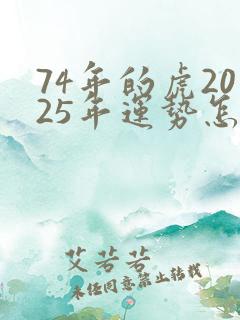 74年的虎20
25年运势怎
艾若若
未经同意禁止转载